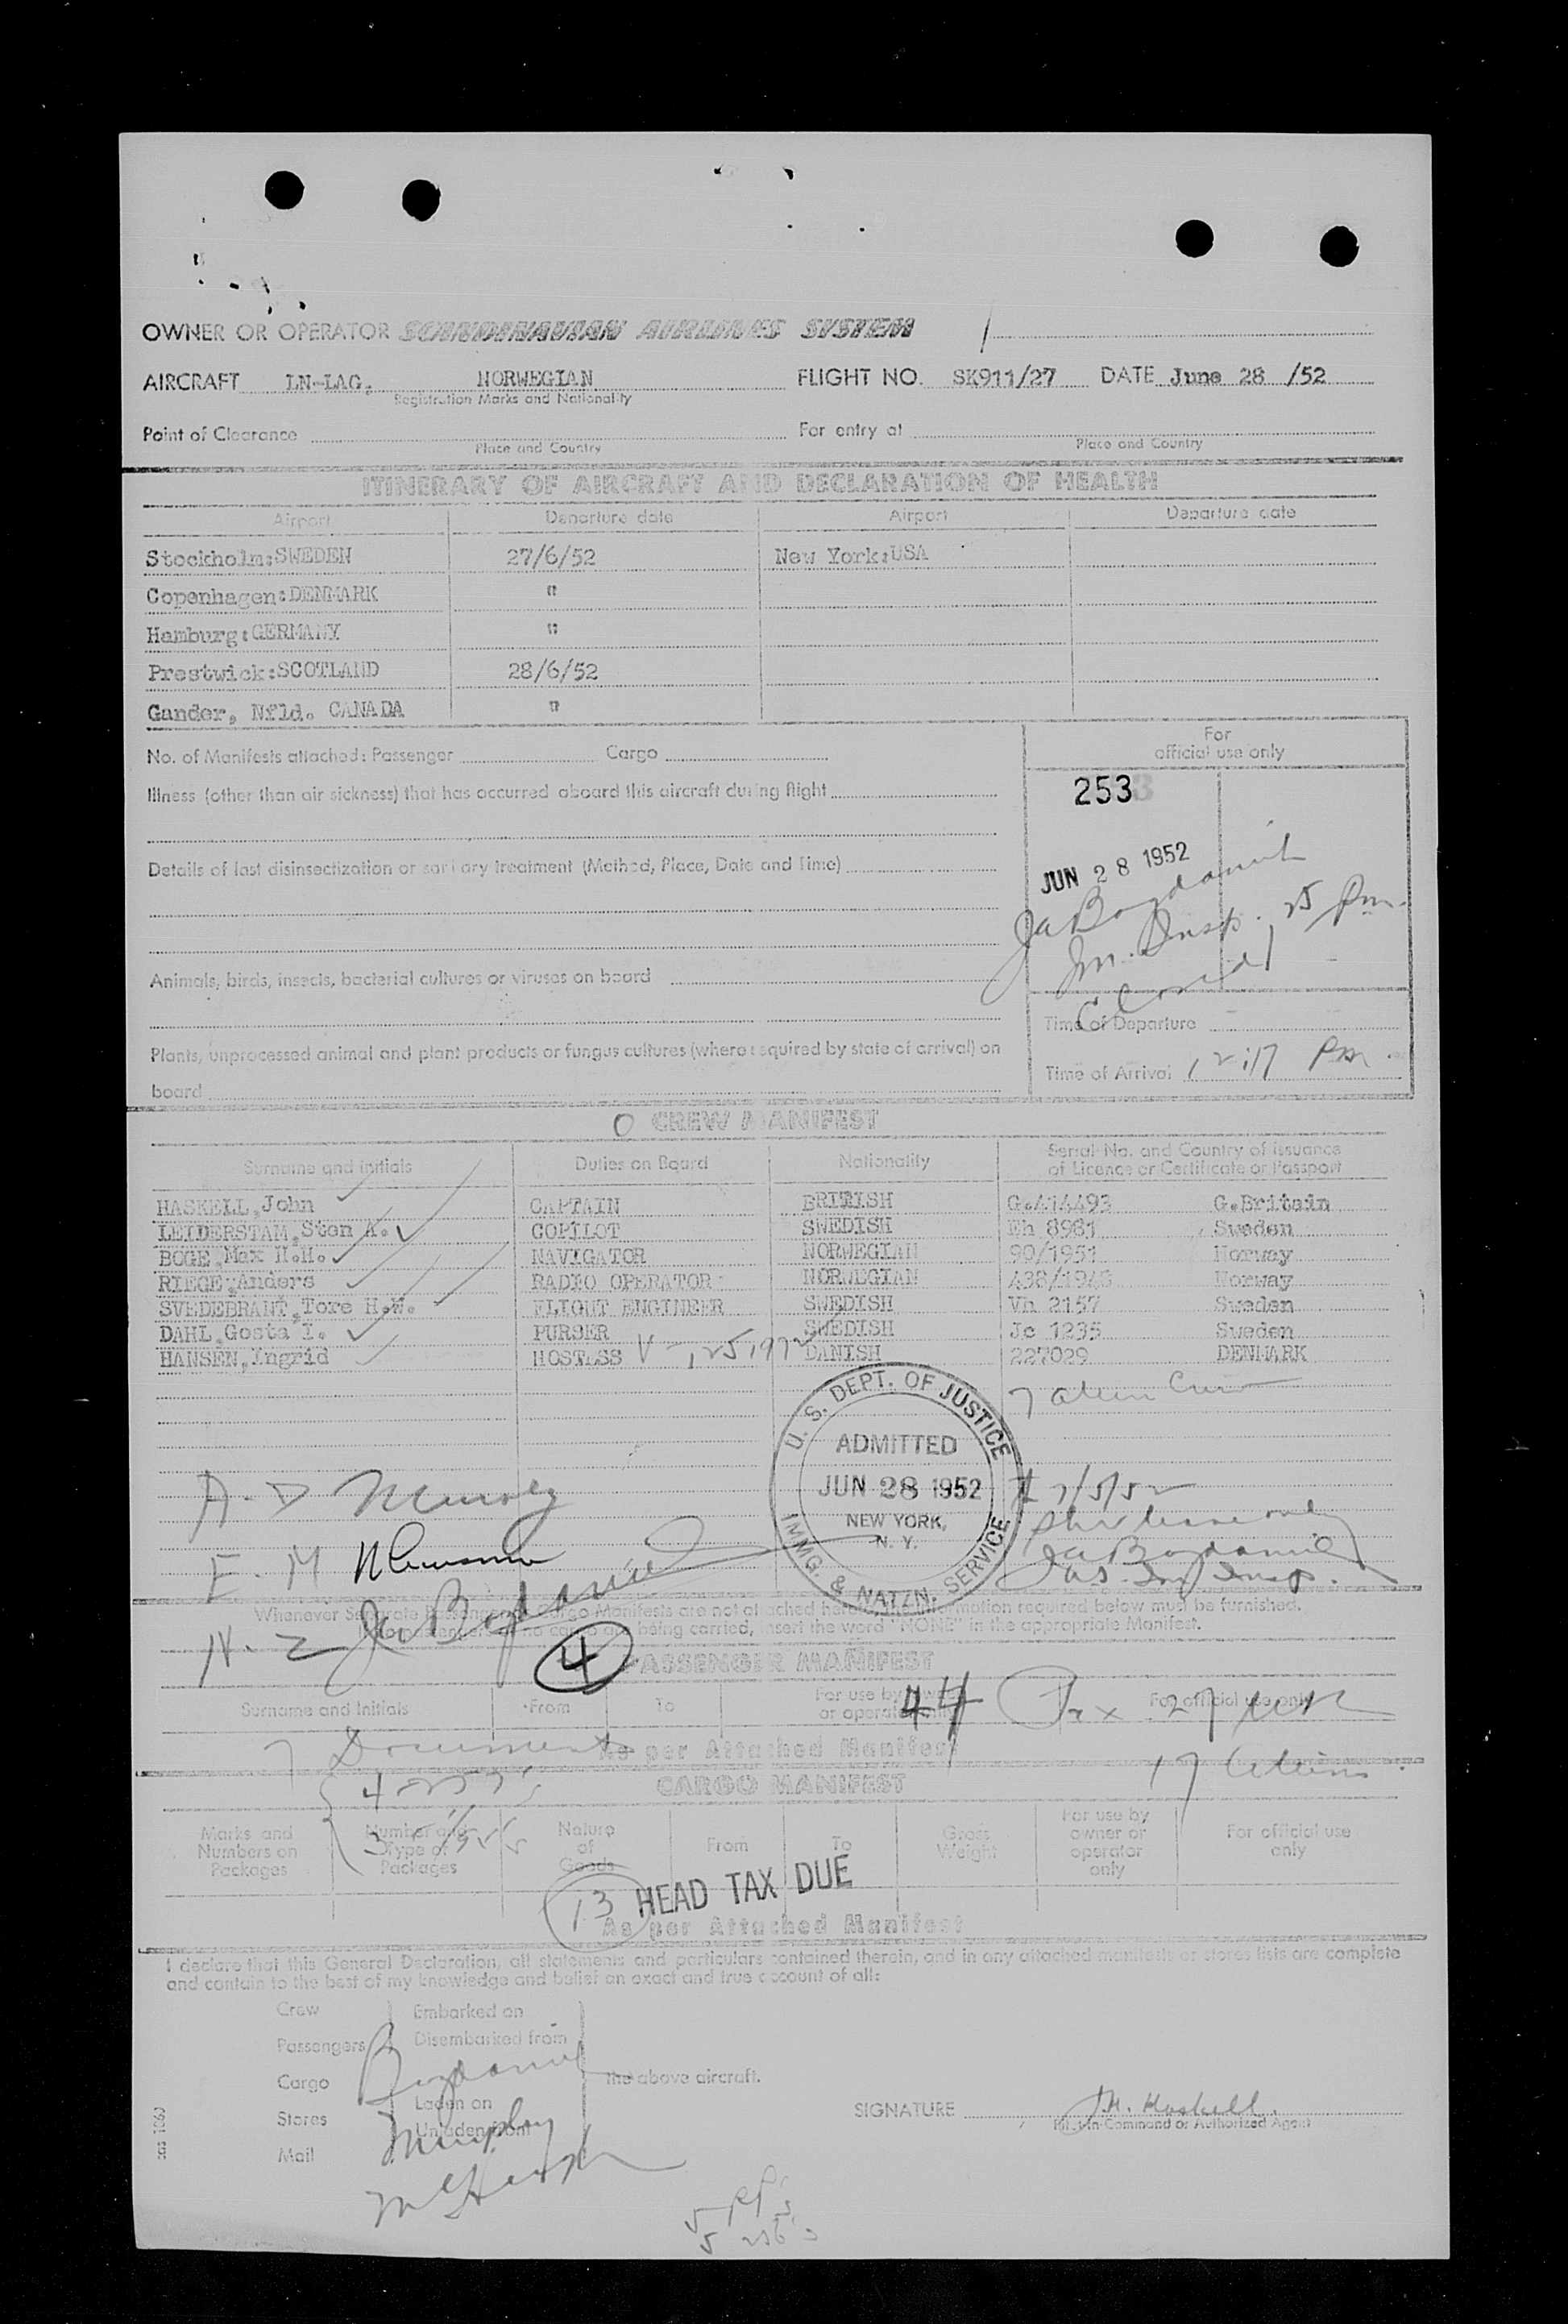 OWNER OR OPERATOR SCANDINAVIAN AIRLINES SYSTEM
AIRCRAFT LN-LAG. NORWEGIAN FLIGHT NO. SK911/27 DATE June 28 /52
Registration Marks and Nationality
Point of Clearance For entry at
Place and Country Place and Country
ITINERARY OF AIRCRAFT AND DECLARATION OF HEALTH
Airport Departure date Airport Departure date
Stockholm:SWEDEN 27/6/52 New York:USA
Copenhagen:DENMARK "
Hamburg:GERMANY "
Prestwick:SCOTLAND 28/6/52
Gander, Nfld. CANADA "
For
official use only
No. of Manifests attached: Passenger Cargo
253
Illness (other than air sickness) that has occurred aboard this aircraft during flight
JUN 28 1952
Details of last disinsectization or sanitary treatment (Method, Place, Date and Time)
Animals, birds, insects, bacterial cultures or viruses on board
Time of Departure
Plants, unprocessed animal and plant products or fungus cultures (where required by state of arrival) on
board
Time of Arrival 12:17 Pm.
CREW MANIFEST
Surname and initials Duties on Board Nationality Serial No. and Country of Issuance
of Licence or Certificate or Passport
HASKELL,John CAPTAIN BRITISH G.414493 G.Britain
LEIDERSTAM,Sten A. COPILOT SWEDISH Eh 8981 Sweden
BOGE,Max H.H. NAVIGATOR NORWEGIAN 90/1951 Norway
RIEGE,Anders RADIO OPERATOR NORWEGIAN Norway
SVEDEBRANT,Tore H.W. FLIGHT ENGINEER SWEDISH Vh 2157 Sweden
DAHL,Gosta I. PURSER SWEDISH Jc 1235 Sweden
HANSEN,Ingrid HOSTESS DANISH 227029 DENMARK
7 alien Crew
U. S. DEPT. OF JUSTICE
ADMITTED
JUN 28 1952
NEW YORK,
N. Y.
IMMG. & NATZN. SERVICE
Whenever Separate Passenger or Cargo Manifests are not attached hereto the information required below must be furnished.
being carried, insert the word "NONE" in the appropriate Manifest.
4
PASSENGER MANIFEST
Surname and Initials From To For use by owner or operator only For official use only
44 Pax 27
7 Documents
As per Attached Manifest
17 Aliens
CARGO MANIFEST
Marks and Numbers on Packages Number and Type of Packages Nature of Goods From To Gross Weight For use by owner or operator only For official use only
13 HEAD TAX DUE
As per Attached Manifest
I declare that this General Declaration, all statements and particulars contained therein, and in any attached manifests or stores lists are complete
and contain to the best of my knowledge and belief an exact and true account of all:
Crew Embarked on
Passengers Disembarked from
Cargo the above aircraft.
Laden on
Stores Unladen from
Mail
Murphy
SIGNATURE J.H. Haskell.
Pilot-in-Command or Authorized Agent